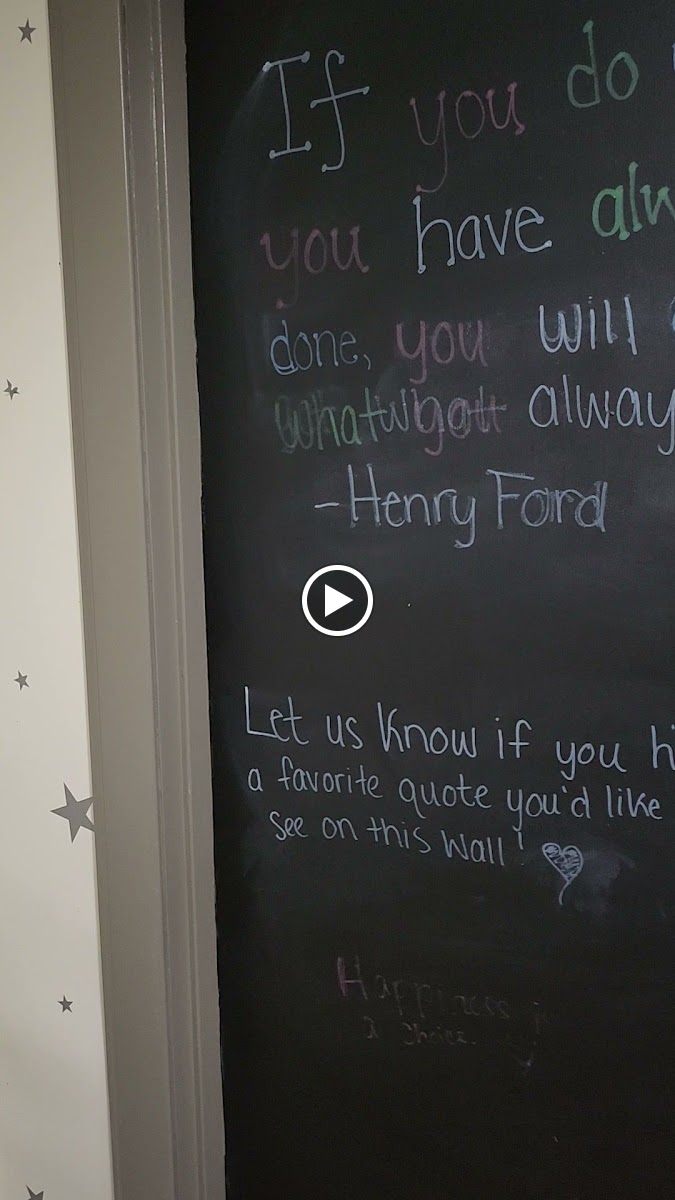 If you do
you have alw
done, you will
what always
-Henry Ford
Let us know if you h
a favorite quote you'd like
see on this wall!
Happiness
a choice.